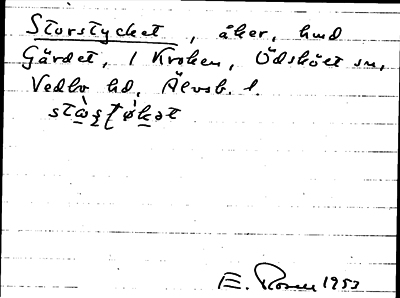 Storstycket, åker, hmd
Gärdet, 1 Kroken, Ödskölt sn,
Vedbo hd, Älvsb. l.
E. Rosen 1953